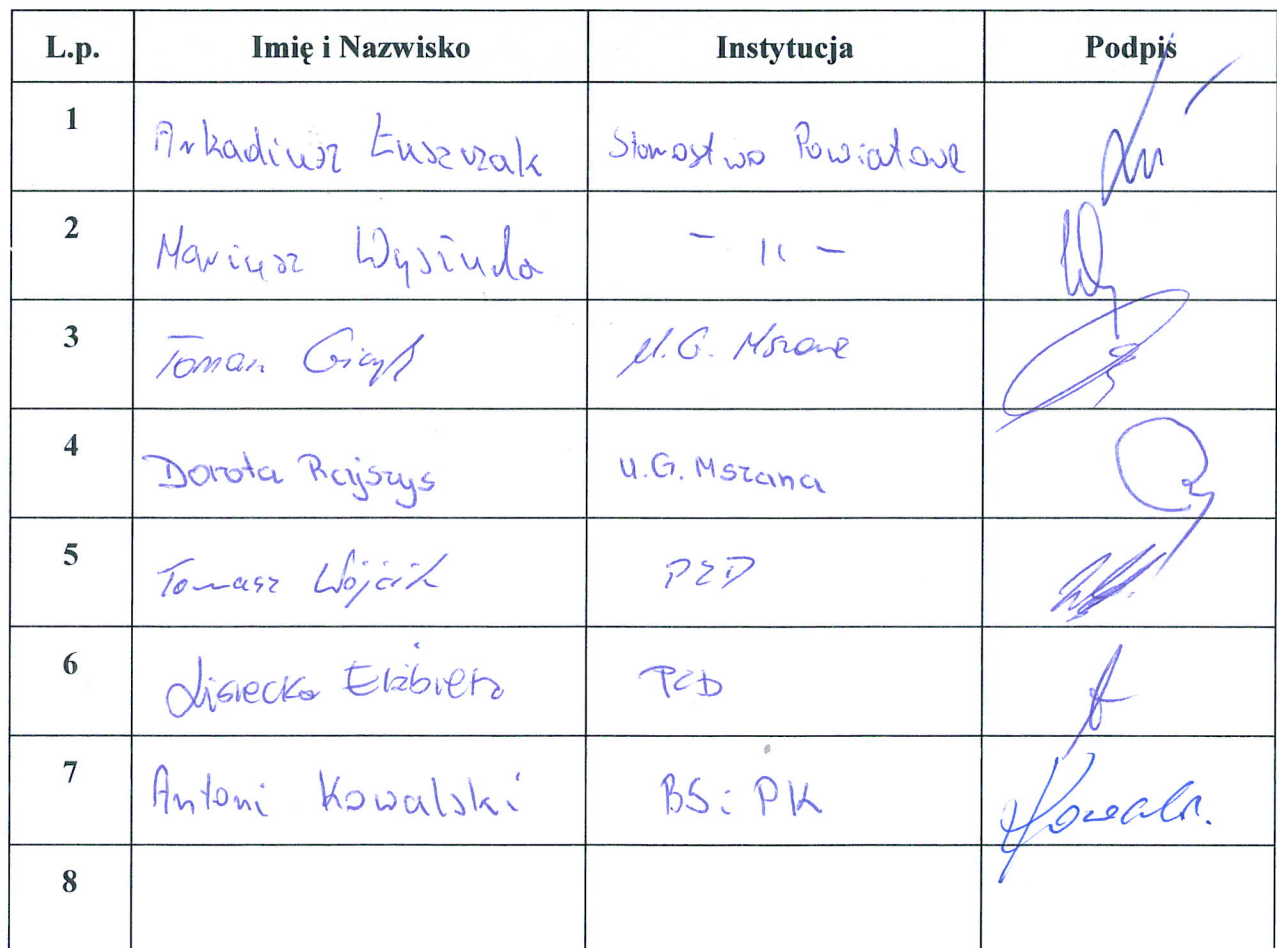 L.p. Imię i Nazwisko Instytucja Podpis
1 Arkadiusz Łuszczak Starostwo Powiatowe
2 Mariusz - 11 -
3 U.G. Mszana
4 Dorota Rajszys U.G. Mszana
5 Tomasz Wójcik PZD
6 Lisiecka Elżbieta PZD
7 Antoni Kowalski BS i PK
8